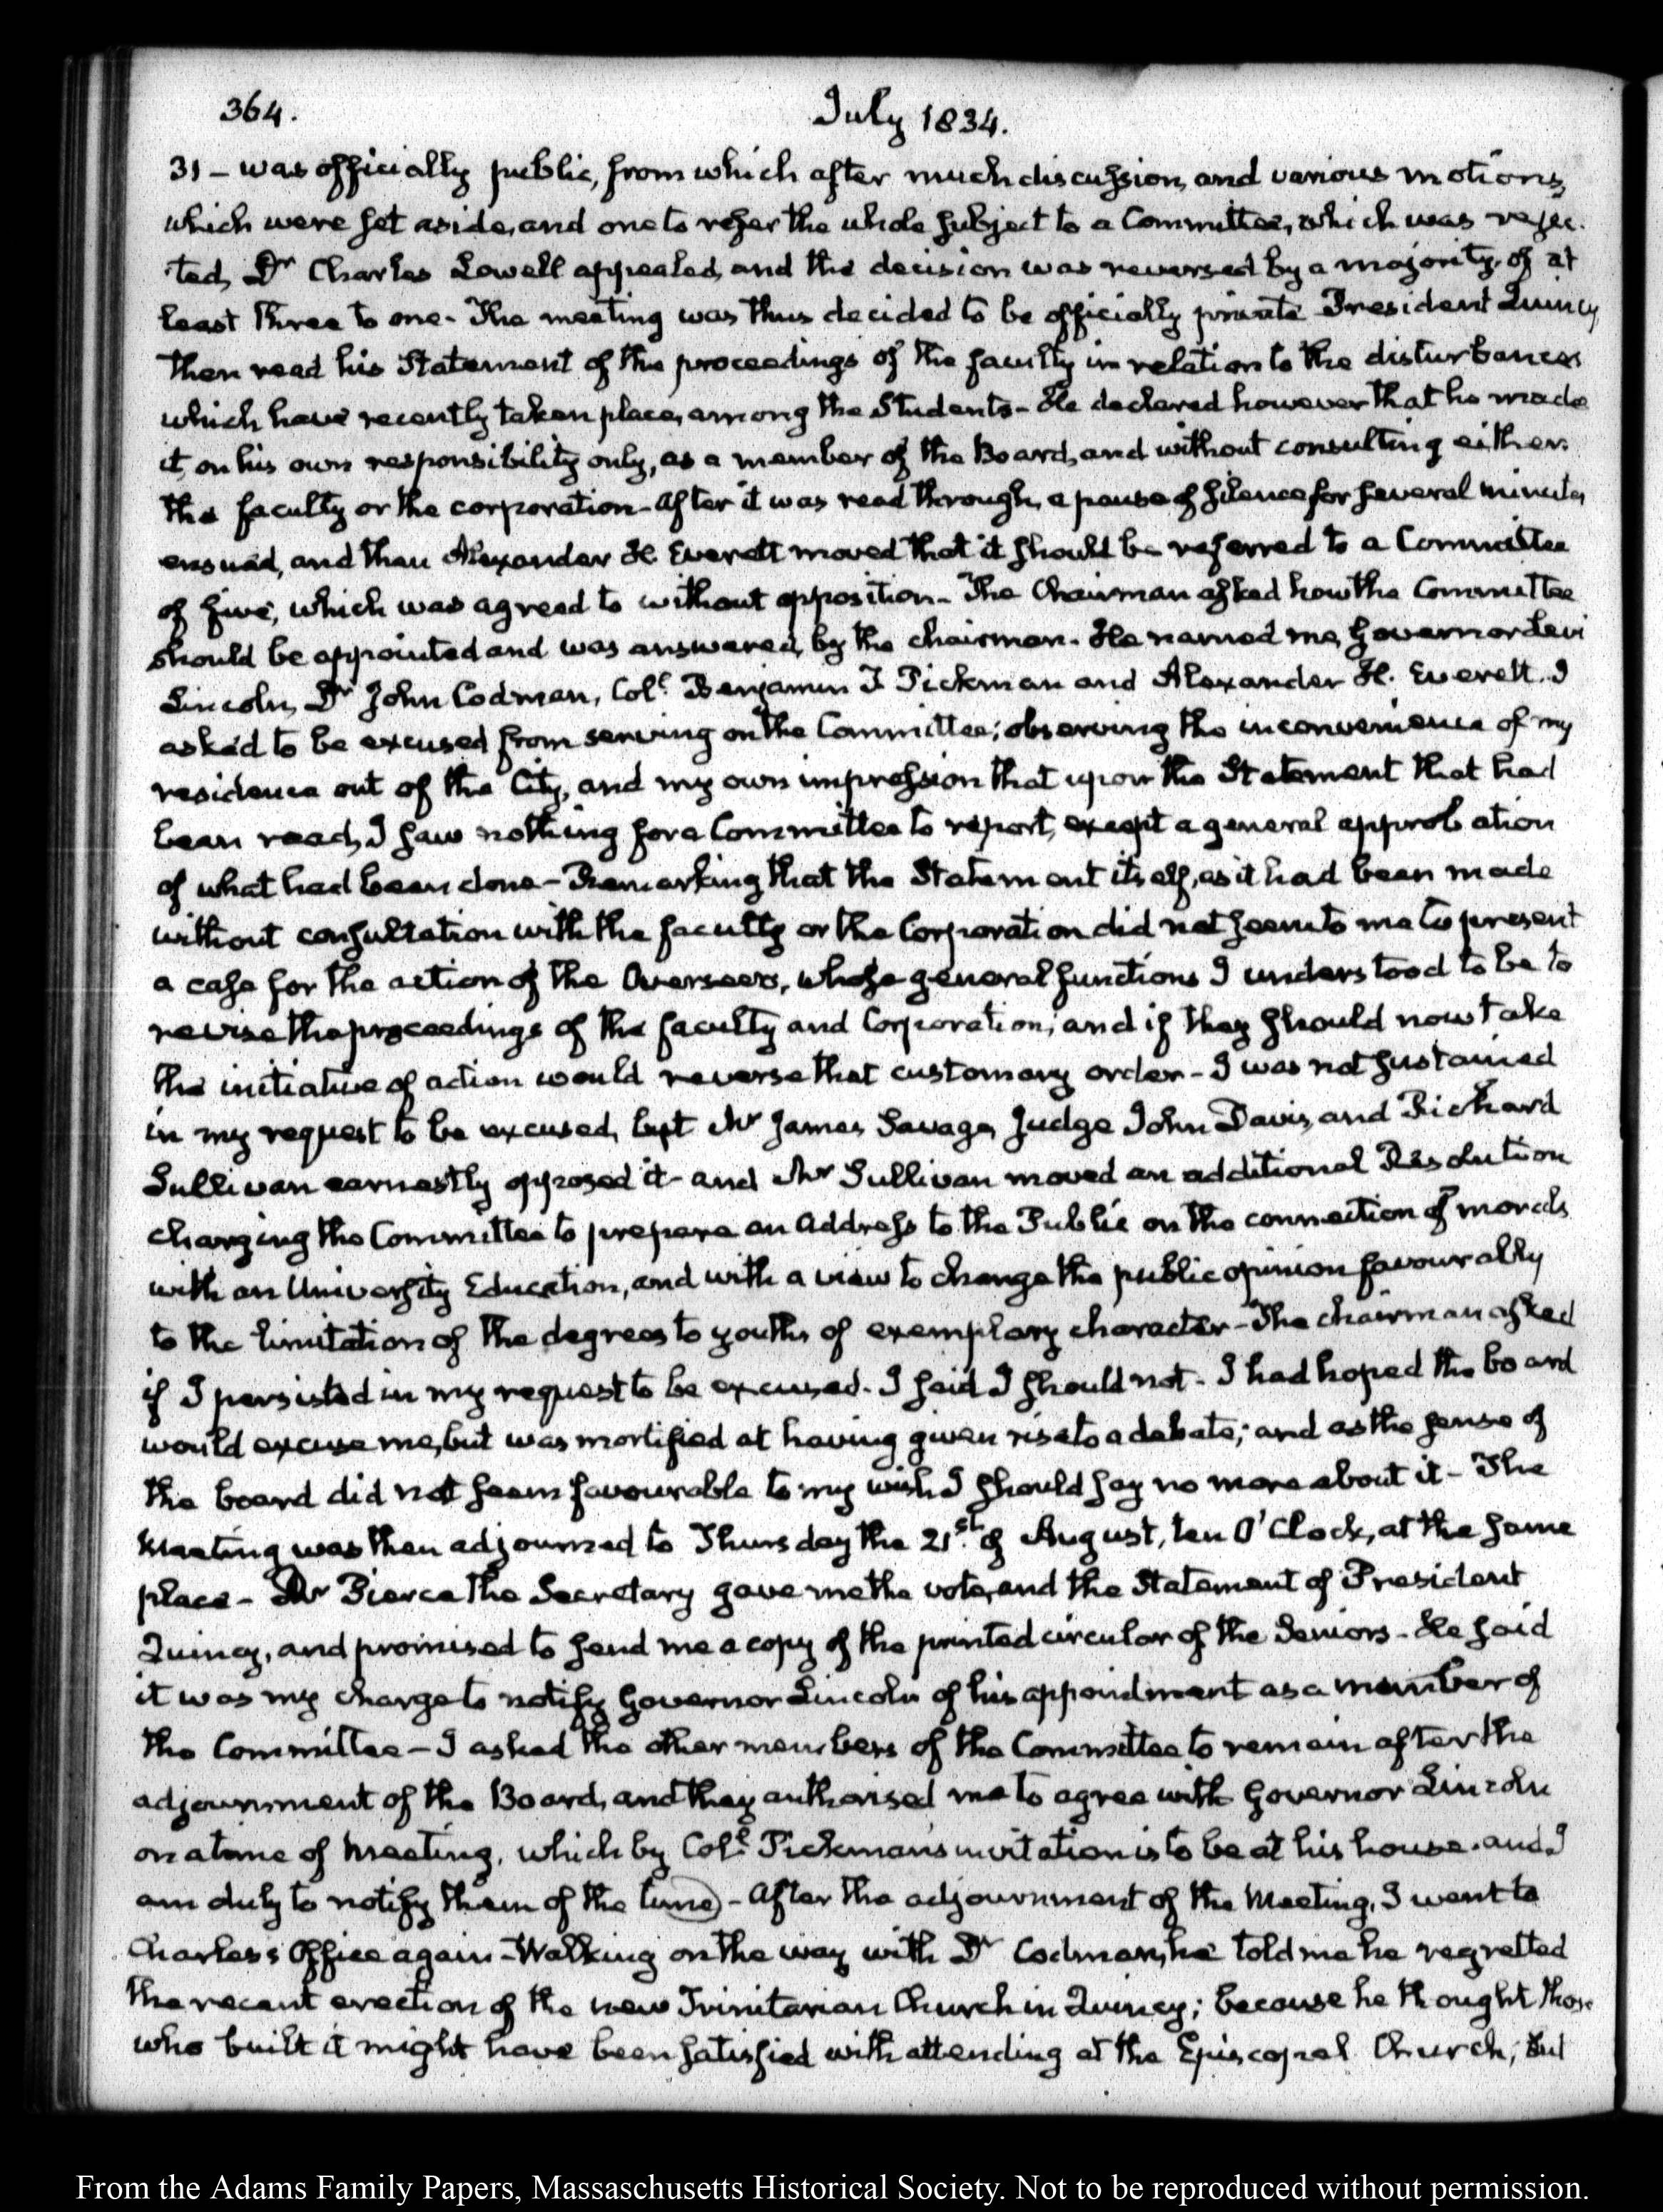 364.
July 1834.
31 — was officially public, from which after much discussion, and various motions,
which were set aside, and one to refer the whole subject to a Committee, which was rejec-
ted, Dr Charles Lowell appealed, and the decision was reversed by a majority, of at
least three to one - The meeting was thus decided to be officially private - President Quincy
then read his Statement of the proceedings of the faculty in relation to the disturbances
which have recently taken place, among the Students - He declared however that he made
it, on his own responsibility only, as a member of the Board, and without consulting either
the faculty or the corporation - After it was read through, a pause of silence for several minutes
ensued, and then Alexander H. Everett moved that it should be referred to a Committee
of five, which was agreed to without opposition - The Chairman asked how the Committee
should be appointed and was answered, by the chairman. He named me, Governor Levi
Lincoln, Dr John Codman, Coll. Benjamin T Pickman and Alexander H. Everett. I
asked to be excused from serving on the Committee; observing the inconvenience of my
residence out of the City, and my own impression that upon the Statement that had
been read, I saw nothing for a Committee to report, except a general approbation
of what had been done - Remarking that the Statement itself, as it had been made
without consultation with the faculty or the Corporation did not seem to me to present
a case for the action of the Overseers, whose general functions I understood to be to
revise the proceedings of the faculty and Corporation; and if they should now take
the initiative of action would reverse that customary order - I was not sustained
in my request to be excused, but Mr James Savage, Judge John Davis, and Richard
Sullivan earnestly opposed it - and Mr Sullivan moved an additional Resolution
charging the Committee to prepare an Address to the Public on the connection of morals
with an University Education, and with a view to change the public opinion favourably
to the limitation of the degrees to youths of exemplary character - The chairman asked
if I persisted in my request to be excused. I said I should not - I had hoped the board
would excuse me, but was mortified at having given rise to a debate; and as the sense of
the board did not seem favourable to my wish I should say no more about it - The
Meeting was then adjourned to Thursday the 21st. of August, ten O'Clock, at the same
place - Dr Pierce the Secretary gave me the vote, and the Statement of President
Quincy, and promised to send me a copy of the printed circular of the Seniors - He said
it was my charge to notify Governor Lincoln of his appointment as a member of
the Committee — I asked the other members of the Committee to remain after the
adjournment of the Board, and they authorised me to agree with Governor Lincoln
on a time of Meeting, which by Coll. Pickman's invitation is to be at his house. and I
am duly to notify them of the time - After the adjournment of the Meeting, I went to
Charles's Office again - Walking on the way with Dr Codman, he told me he regretted
the recent erection of the new Trinitarian Church in Quincy; because he thought those
who built it might have been satisfied with attending at the Episcopal Church; but
From the Adams Family Papers, Massachusetts Historical Society. Not to be reproduced without permission.